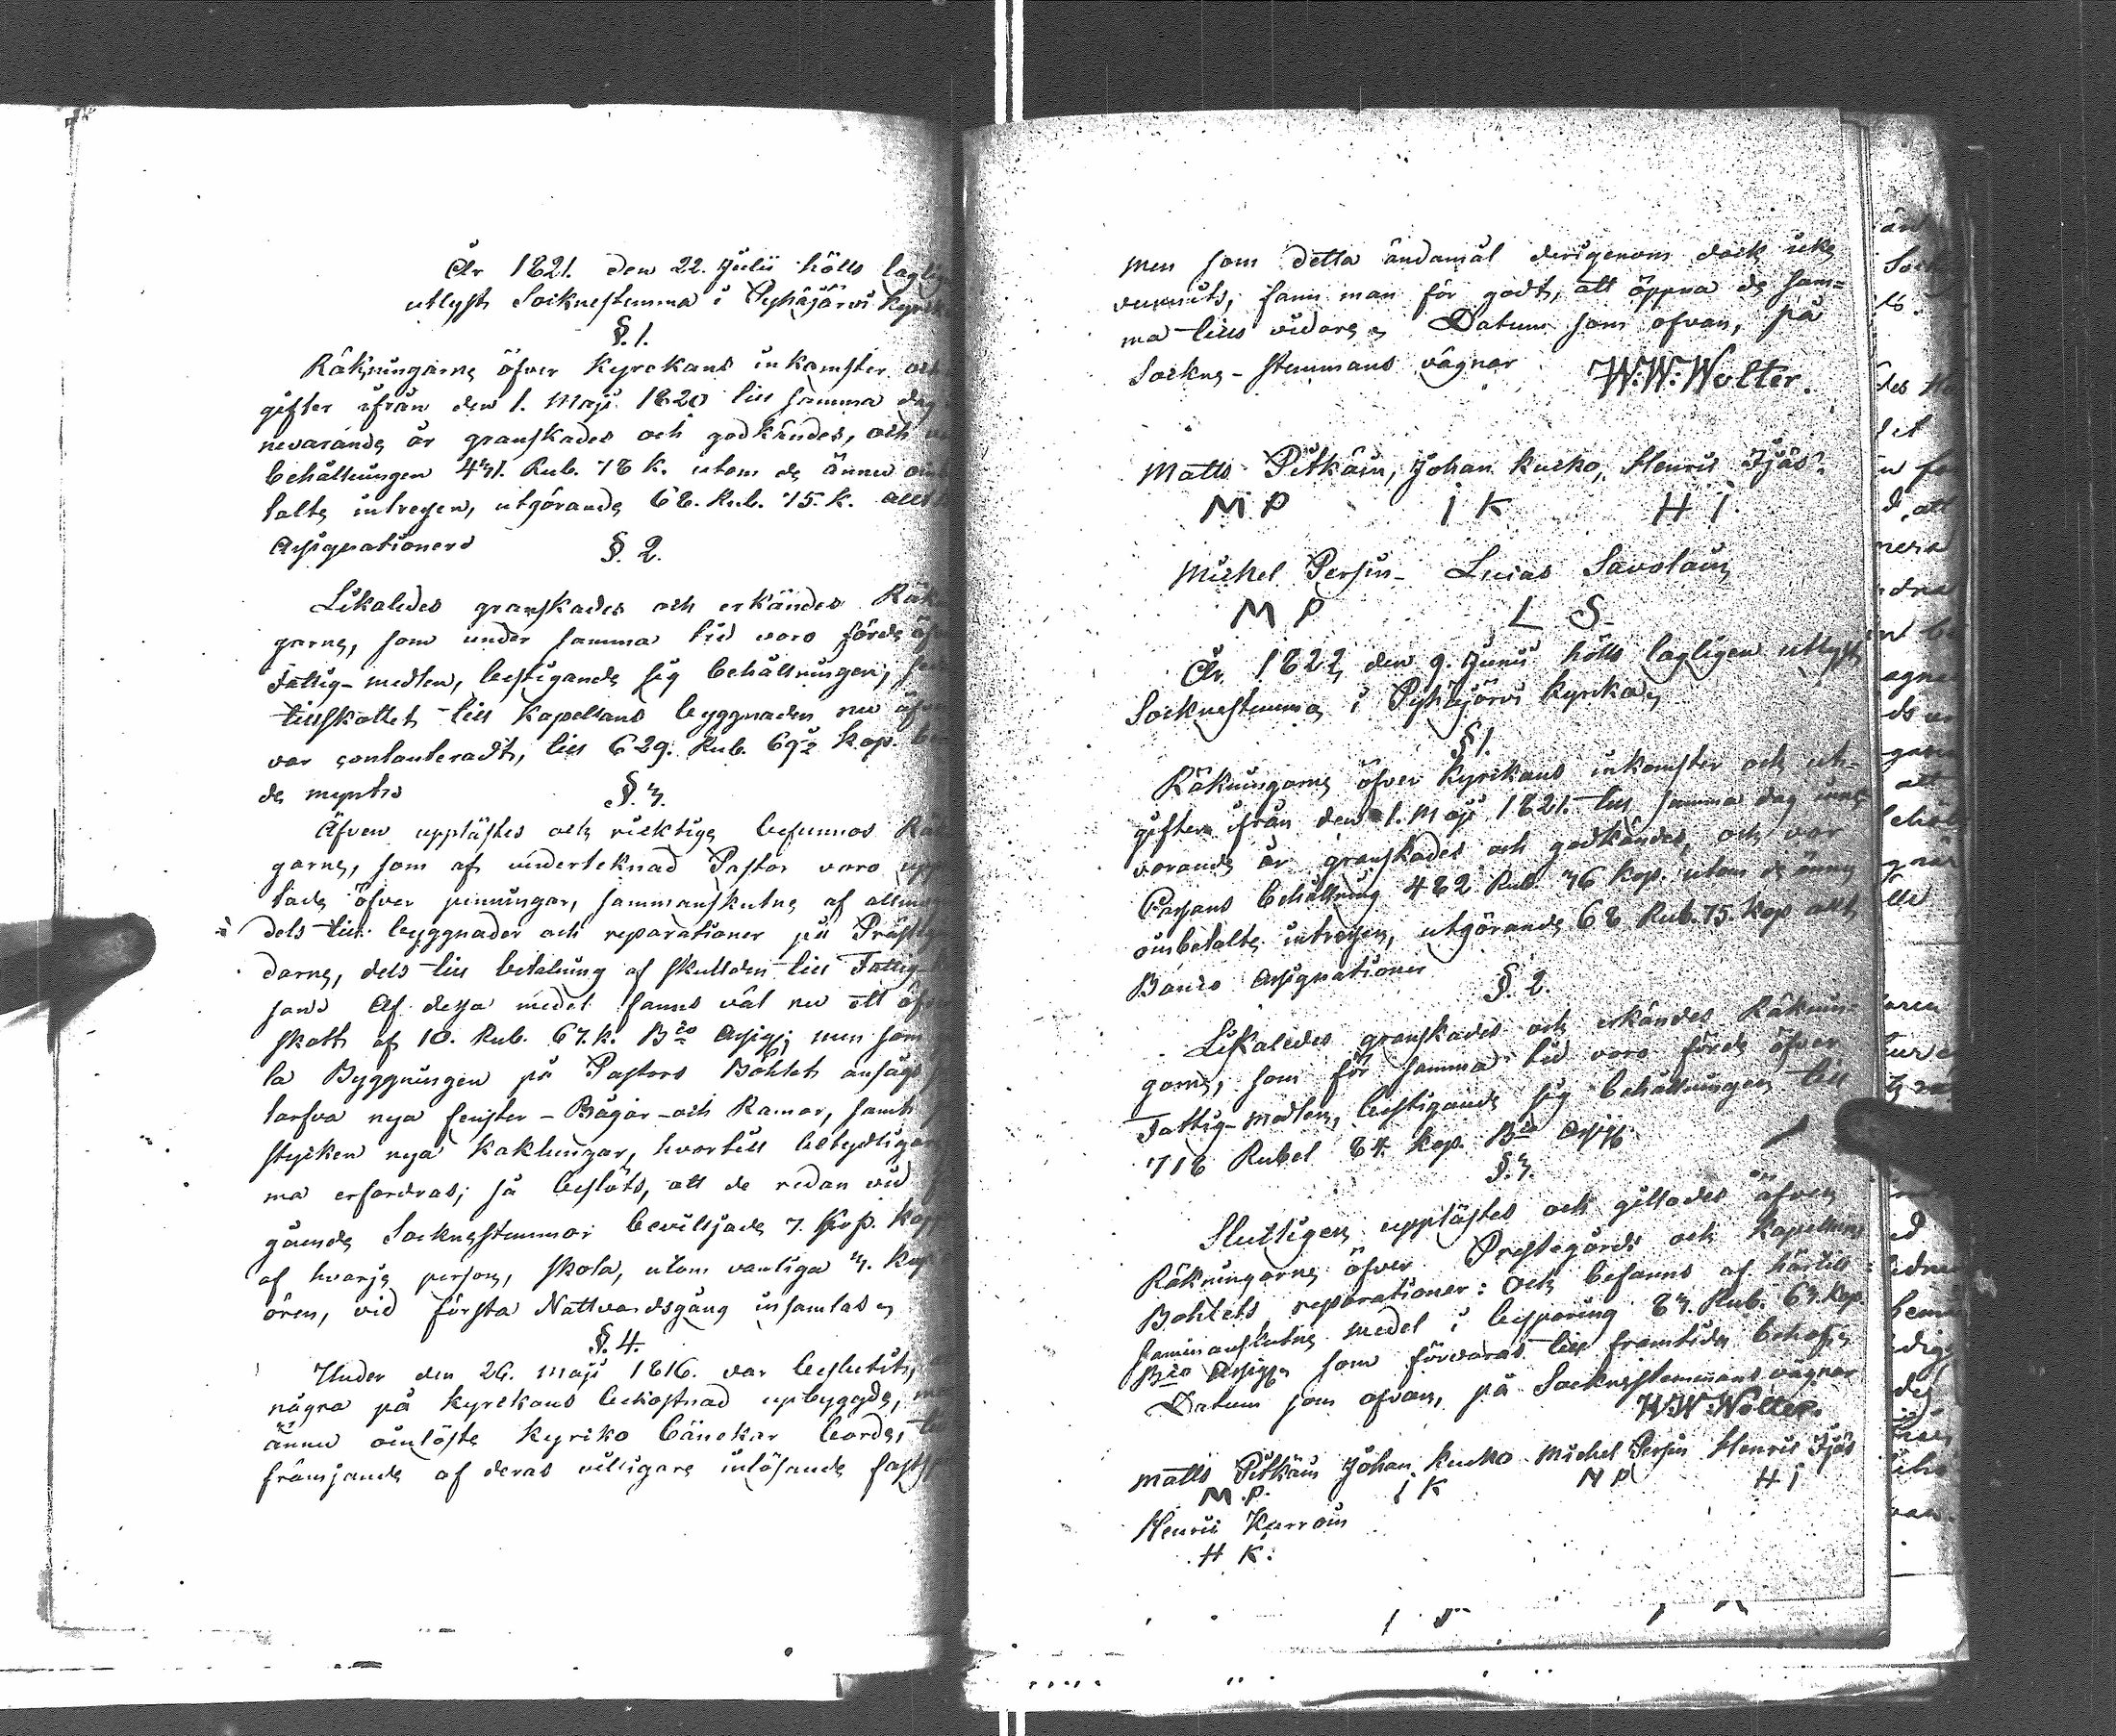 År 1821. den 22. Julii hölls laglig
utlyst Socknestemma i Pyhäjärvi Kyrk
§. 1.
Räkningarne öfver Kyrckans inkomster och
gifter ifrån den 1. Maji 1820 till samma dag
nevarande år granskades och godkändes, och
behållningen 431. Rub. 78 K. utom de ännu
talte intressen, utgörande 68. Rub. 75. K. allt
Assignationer
§. 2.
Likaledes granskades och erkändes Räkn
garne, som under samma tid voro förde öf
Fattig-medlen, bestigande sig behållningen,
tillskottet till Kapellans byggnaden nu
var contanteradt, till 629. Rub. 69½ Kop.
de myntr
§. 3.
Äfven upplästes och ricktige befunnos Räk
garne, som af undertecknad Pastor voro upp
tade öfver penningar, sammanskutne af allm
dels till byggnader och reparationer på Prästg
darne, dels till betalning af skulden till Fattig
Af dessa medel fanns väl nu ett öf
skott af 10. Rub. 67. K. Bco Assig; men som
la Byggningen på Pastors Bohlet ansågs
tarfva nya fenster-Bågar-och Ramar, samt
stycken nya Kaklungar, hvartill betydligare
ma erfordras; så beslöts, att de redan vid
gående Socknestemmor beviljade 7. Kop. Kopp
af hvarje person, skola, utom vanliga 3. Kop
ören, vid första Nattvardsgång insamlas
§. 4.
Under den 26. Maji 1816. var beslutit,
några på Kyrckans bekostnad upbyggde, m
ännu oinlöste Kyrko bänckar borde,
främjande af deras villigare inlösande fast
men som detta ändamål derigenom dock icke
vunnits, fann man för godt, att öppna de sam=
ma till vidare. Datum som ofvan, på
Sockne-stemmans vägnar W. W. Wolter.
Matts Pitkäin, Johan Kucko, Henric Jjäs.
M P I K H I
Michel Persin Lucas Savolain
M P L S
År 1822 den 9. Junii hölls lagligen utlyst
Socknestemma i Pyhäjärvi Kyrcka
§ 1.
Räkningarne öfver Kyrckans inkomster och ut=
gifter ifrån den 1. Maji 1821. till samma dag inne
varande år granskades och godkändes, och var
Cassans behållning 482 Rub. 36 Kop. utom de ännu
oinbetalte intressen, utgörande 68 Rub. 75. Kop allt
Banco Assignationer
§. 2.
Likaledes granskades och erkändes Räknin=
garne, som för samma tid voro förde öfver
Fattig-medlen, bestigande sig behållningen till
718 Rubel 84. Kop. Bco Assig
§. 3.
Slutligen upplästes och gillades äfven
Räkningarne öfver Prestegårds och Kapellans
Bohlets reparationer: och befanns af härtill
sammanskutne medel i besparing 83. Rub. 63. Kop.
Bco Assig. som förvaras till framtida behof.
Datum som ofvan, på Socknestemmans vägnar
W. W. Wolter.
Matts Pitkäin Johan Kucko Michel Persin Henric Jjäs
M. P. I K M P H I
Henric Karrain
H K.